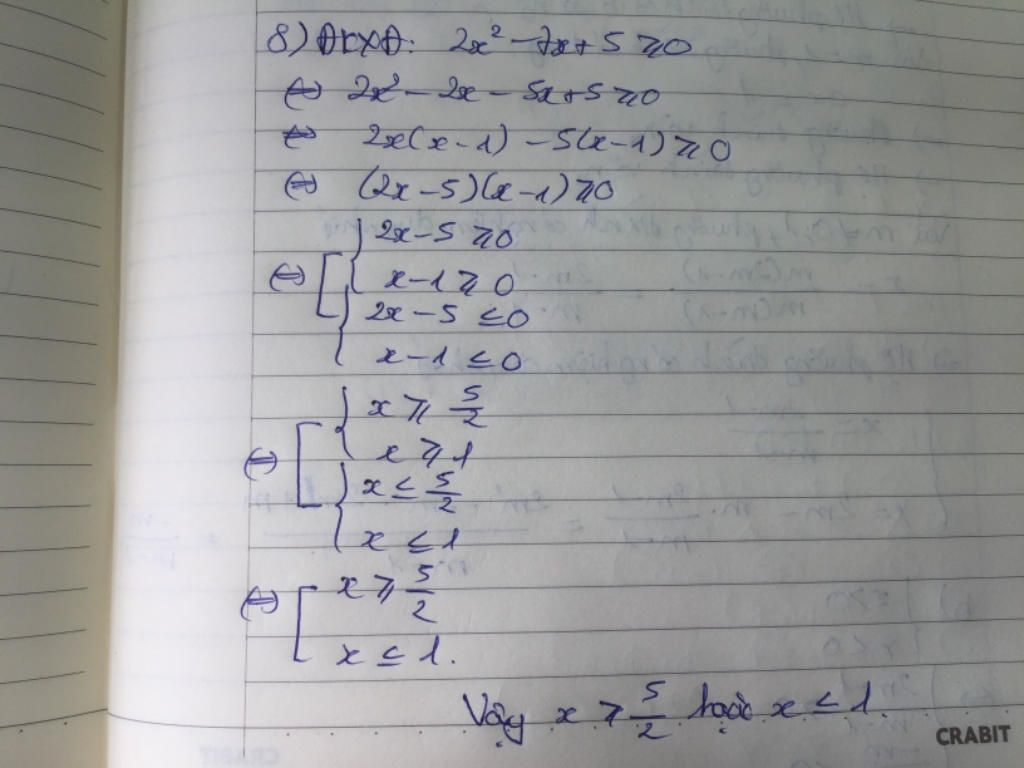 8) ĐKXĐ: 2x² - 7x + 5 ≥ 0
⇔ 2x² - 2x - 5x + 5 ≥ 0
⇔ 2x(x - 1) - 5(x - 1) ≥ 0
⇔ (2x - 5)(x - 1) ≥ 0
⇔ [ { 2x - 5 ≥ 0
x - 1 ≥ 0
{ 2x - 5 ≤ 0
x - 1 ≤ 0
⇔ [ { x ≥ 5/2
x ≥ 1
{ x ≤ 5/2
x ≤ 1
⇔ [ x ≥ 5/2
x ≤ 1.
Vậy x ≥ 5/2 hoặc x ≤ 1.
CRABIT